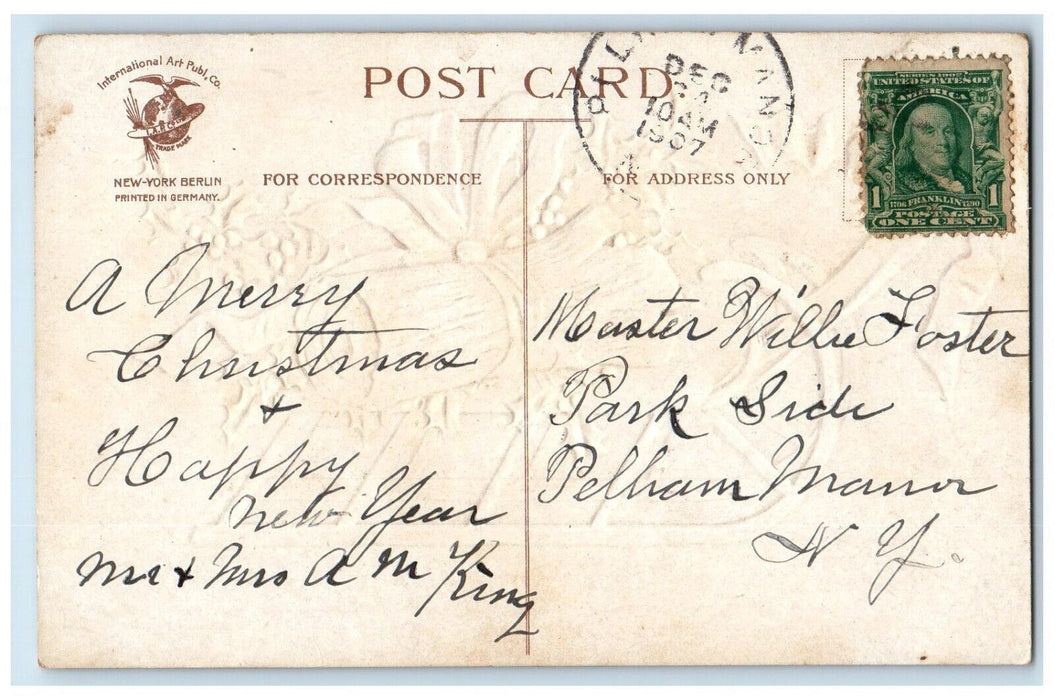 International Art Publ. Co.
I.A.P. Co.
TRADE MARK
NEW-YORK BERLIN
PRINTED IN GERMANY.
POST CARD
FOR CORRESPONDENCE
FOR ADDRESS ONLY
MANOR
DEC
10 AM
1907
SERIES 1902
UNITED STATES OF
AMERICA
1 1
1706 FRANKLIN 1790
POSTAGE
ONE CENT
A Merry
Christmas
+
Happy
New Year
Mr + Mrs A M King
Master Willie Foster
Park Side
Pelham Manor
N Y.